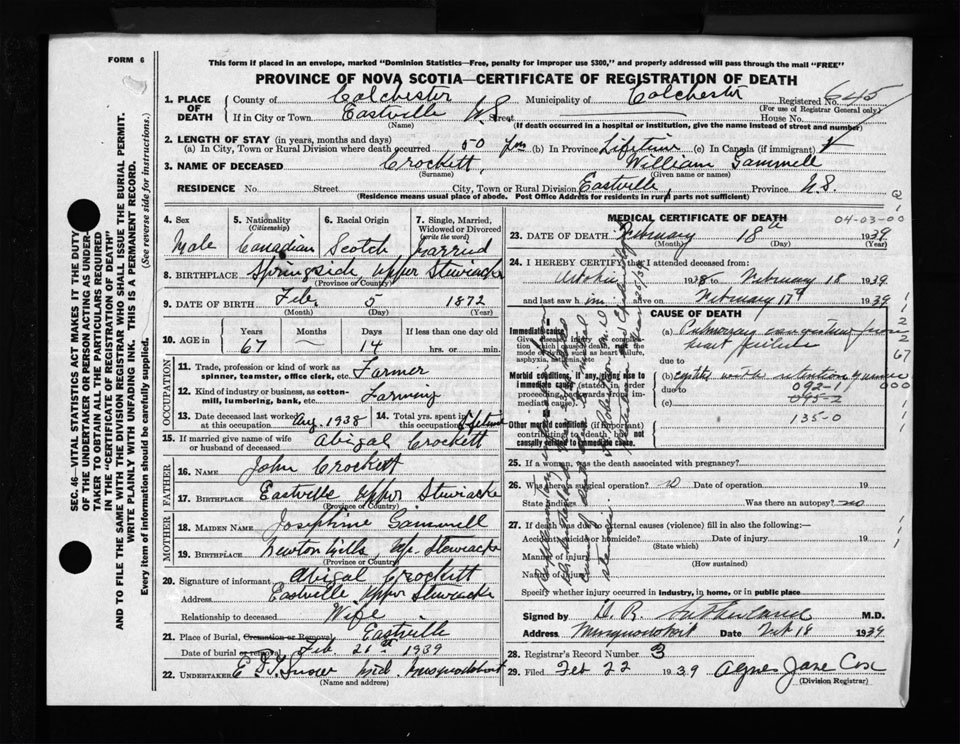 FORM 6
This form if placed in an envelope, marked "Dominion Statistics—Free, penalty for improper use $300," and properly addressed will pass through the mail "FREE"
PROVINCE OF NOVA SCOTIA—CERTIFICATE OF REGISTRATION OF DEATH
1. PLACE OF DEATH
County of Colchester Municipality of Colchester Registered No. 645
(For use of Registrar General only)
If in City or Town Eastville N.S. Street House No.
(Name) (If death occurred in a hospital or institution, give the name instead of street and number)
2. LENGTH OF STAY (in years, months and days)
(a) In City, Town or Rural Division where death occurred 50 yrs (b) In Province Lifetime (c) In Canada (if immigrant)
3. NAME OF DECEASED Crockett, William Gammell
(Surname) (Given name or names)
RESIDENCE No. Street City, Town or Rural Division Eastville, Province N.S.
(Residence means usual place of abode. Post Office Address for residents in rural parts not sufficient)
4. Sex
Male
5. Nationality
(Citizenship)
Canadian
6. Racial Origin
Scotch
7. Single, Married, Widowed or Divorced
(write the word)
Married
8. BIRTHPLACE Springside, Upper Stewiacke
(Province or County)
9. DATE OF BIRTH Feb. 5 1872
(Month) (Day) (Year)
10. AGE in
Years Months Days If less than one day old
67 — 14 hrs. or min.
OCCUPATION
11. Trade, profession or kind of work as spinner, teamster, office clerk, etc. Farmer
12. Kind of industry or business, as cotton-mill, lumbering, bank, etc. Farming
13. Date deceased last worked at this occupation Aug. 1938
14. Total yrs. spent in this occupation Lifetime
15. If married give name of wife or husband of deceased Abigal Crockett
FATHER
16. NAME John Crockett
17. BIRTHPLACE Eastville Upper Stewiacke
(Province or County)
MOTHER
18. MAIDEN NAME Josephine Gammell
19. BIRTHPLACE Newton Mills, Up. Stewiacke
(Province or County)
20. Signature of informant Abigal Crockett
Address Eastville Upper Stewiacke
Relationship to deceased Wife
21. Place of Burial, Cremation or Removal Eastville
Date of burial or removal Feb. 21st 1939
22. UNDERTAKER Mid. Musquodoboit
(Name and address)
MEDICAL CERTIFICATE OF DEATH 04-03-00
23. DATE OF DEATH February 18th 1939
(Month) (Day) (Year)
24. I HEREBY CERTIFY that I attended deceased from:
October 1938 to February 18 1939
and last saw him alive on February 17th 1939
CAUSE OF DEATH
Immediate cause
Give disease, injury or complication which caused death, not the mode of dying, such as heart failure, asphyxia, asthenia, etc.
(a) Pulmonary congestion from heart failure
due to
Morbid conditions, if any, giving rise to immediate cause (stated in order proceeding backwards from immediate cause).
(b) cystitis with retention of urine
due to 092-1
095-2
(c)
Other morbid conditions (if important) contributing to death but not causally related to immediate cause.
135-0
25. If a woman, was the death associated with pregnancy?
26. Was there a surgical operation? no Date of operation 19
State findings Was there an autopsy? no
27. If death was due to external causes (violence) fill in also the following:—
Accident, suicide or homicide? Date of injury 19
(State which)
Manner of injury
(How sustained)
Nature of injury
Specify whether injury occurred in industry, in home, or in public place
Signed by D. R. Sutherland M.D.
Address Musquodoboit Date Feb 18 1939
28. Registrar's Record Number 3
29. Filed Feb 22 1939 Agnes Jane Cox
(Division Registrar)
SEC. 46—VITAL STATISTICS ACT MAKES IT THE DUTY OF THE UNDERTAKER OR PERSON ACTING AS UNDERTAKER TO OBTAIN ALL THE PARTICULARS REQUIRED IN THE "CERTIFICATE OF REGISTRATION OF DEATH" AND TO FILE THE SAME WITH THE DIVISION REGISTRAR WHO SHALL ISSUE THE BURIAL PERMIT.
WRITE PLAINLY WITH UNFADING INK. THIS IS A PERMANENT RECORD.
Every item of information should be carefully supplied. (See reverse side for instructions.)
67
000